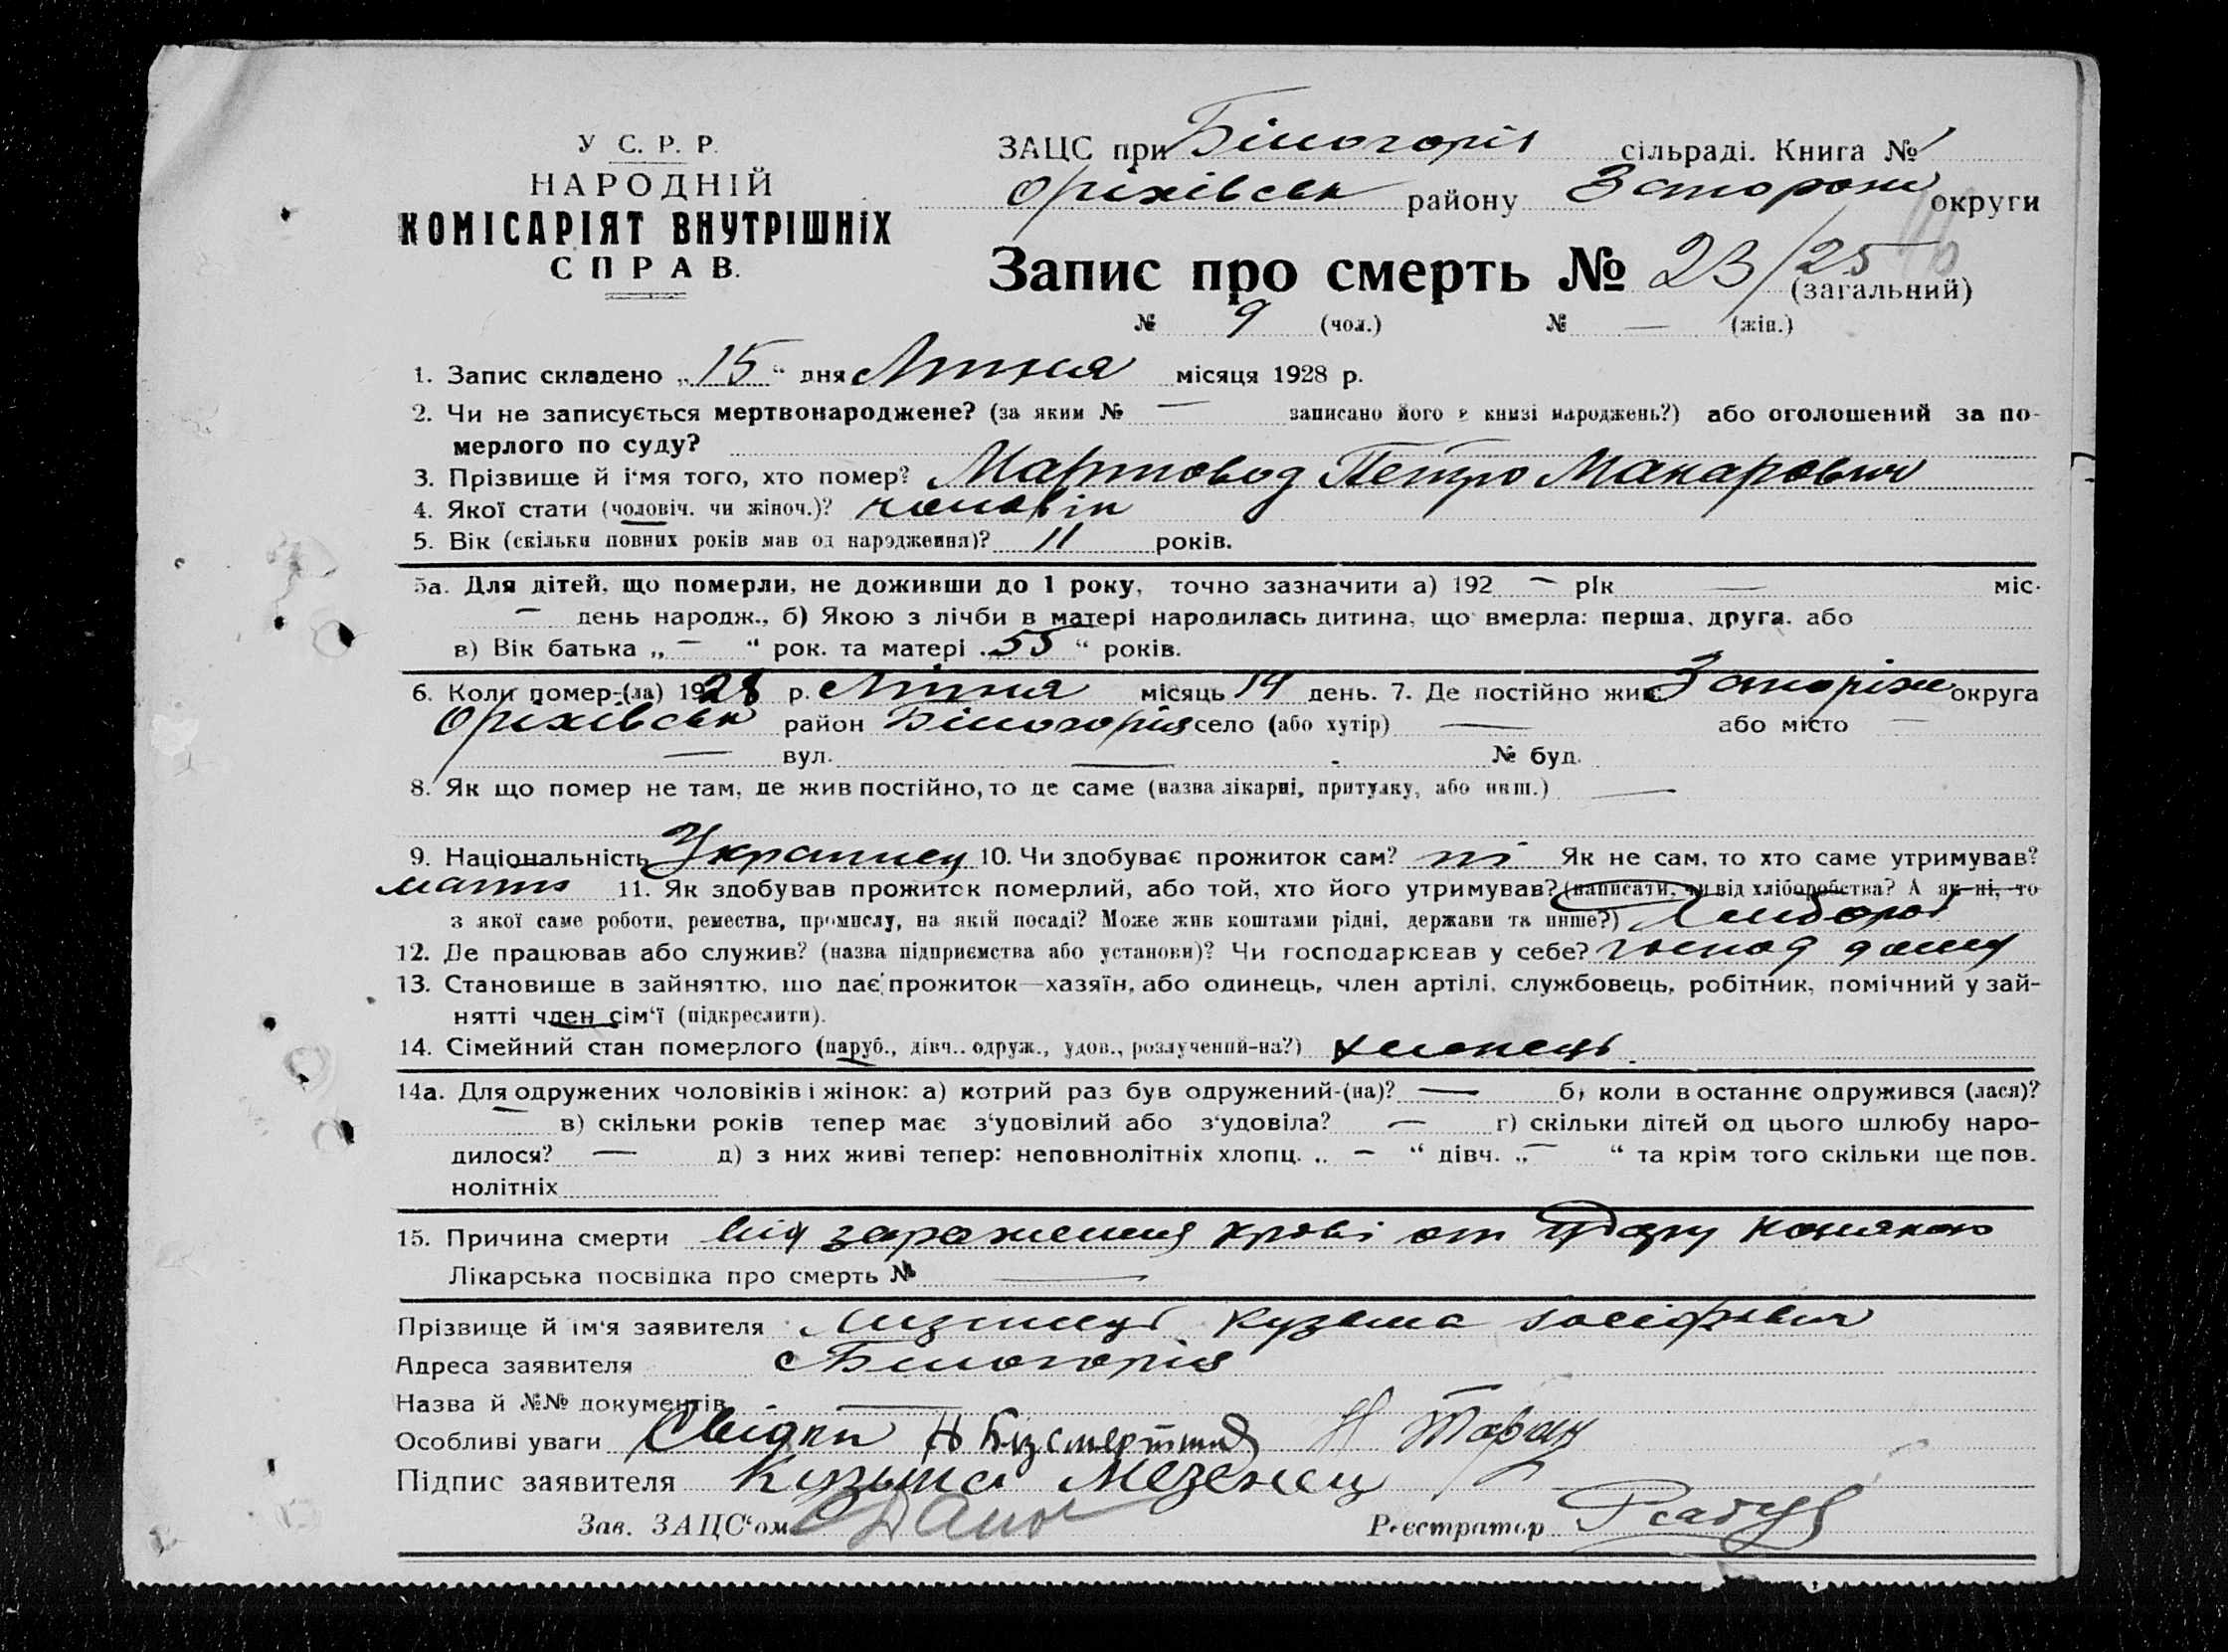 У С. Р. Р.
НАРОДНІЙ
КОМІСАРІЯТ ВНУТРІШНІХ
СПРАВ.
ЗАЦС при Білогорія сільраді. Книга №
Оріхівськ району Запорожж округи
Запис про смерть № 23/25 (загальний)
№ 9 (чол.) № — (жін.)
1. Запис складено „15“ дня Липня місяця 1928 р.
2. Чи не записується мертвонароджене? (за яким № — записано його в книзі народжень?) або оголошений за по-
мерлого по суду?
3. Прізвище й і'мя того, хто помер? Мартовод Петро Макарович
4. Якої стати (чоловіч. чи жіноч.)? чоловік
5. Вік (скільки повних років мав од народження)? 11 років.
5а. Для дітей, що померли, не доживши до 1 року, точно зазначити а) 192 — рік — міс.
— день народж., б) Якою з лічби в матері народилась дитина, що вмерла: перша, друга, або
в) Вік батька „ — “ рок. та матері „55“ років.
6. Коли помер-(ла) 1928 р. Липня місяць 14 день. 7. Де постійно жив: Запоріж округа
Оріхівськ район Білогорія село (або хутір) — або місто —
— вул. — № буд.
8. Як що помер не там, де жив постійно, то де саме (назва лікарні, притулку, або инш.) —
9. Національність Украинец 10. Чи здобуває прожиток сам? ні Як не сам, то хто саме утримував?
мати 11. Як здобував прожиток померлий, або той, хто його утримував? (написати, чи від хліборобства? А як ні, то
з якої саме роботи, ремества, промислу, на якій посаді? Може жив коштами рідні, держави та инше?) Хлибороб
12. Де працював або служив? (назва підприємства або установи)? Чи господарював у себе? господ дому
13. Становище в зайняттю, що дає прожиток—хазяїн, або одинець, член артілі, службовець, робітник, помічний у зай-
нятті член сім'ї (підкреслити).
14. Сімейний стан померлого (паруб., дівч., одруж., удов., розлучений-на?) хлопець
14а. Для одружених чоловіків і жінок: а) котрий раз був одружений-(на)? — б) коли в останнє одружився (лася)?
— в) скільки років тепер має з'удовілий або з'удовіла? — г) скільки дітей од цього шлюбу наро-
дилося? — д) з них живі тепер: неповнолітніх хлопц. „ — “ дівч. „ — “ та крім того скільки ще пов.
нолітніх
15. Причина смерти від зараження крові от удару конякою
Лікарська посвідка про смерть № —
Прізвище й ім'я заявителя Кузьма
Адреса заявителя с Білогорія
Назва й №№ документів —
Особливі уваги Свідки Н Бізсмертний Н Таран
Підпис заявителя Кузьма Мезенец
Зав. ЗАЦС'ом
Реєстратор